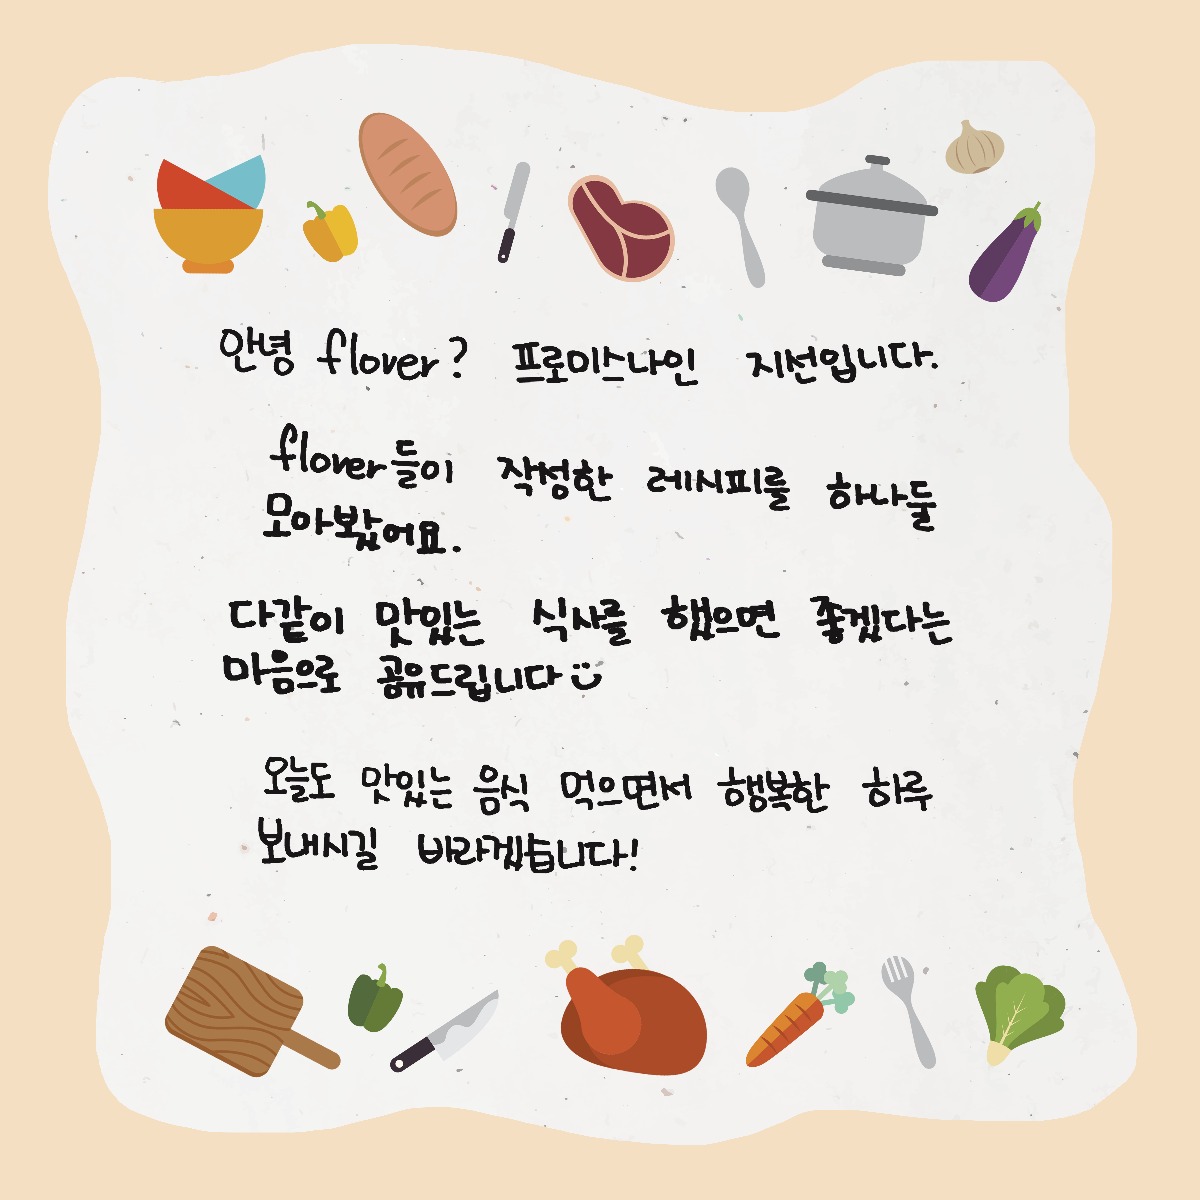 안녕 flover? 프로미스나인 지선입니다.
flover들이 작성한 레시피를 하나둘
모아봤어요.
다같이 맛있는 식사를 했으면 좋겠다는
마음으로 공유드립니다
오늘도 맛있는 음식 먹으면서 행복한 하루
보내시길 바라겠습니다!